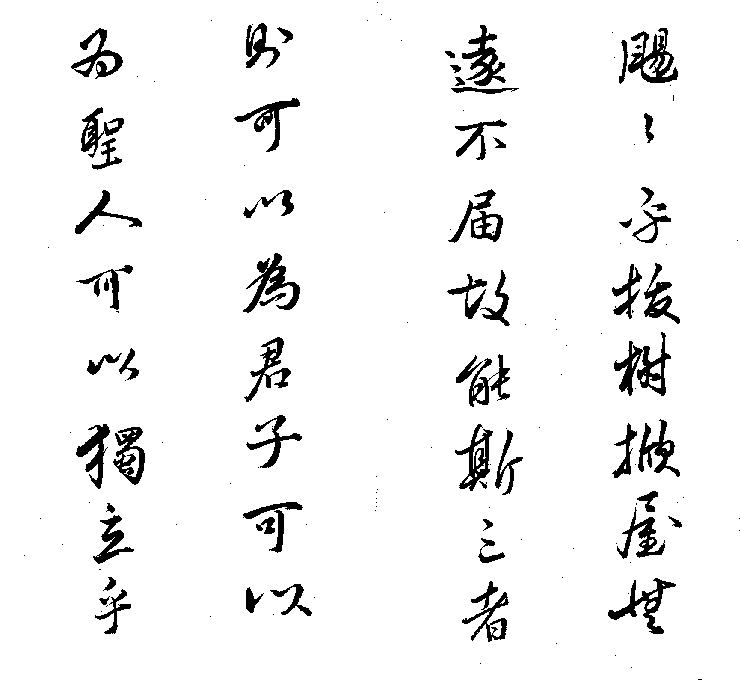 颺〻乎拔樹掀屋無
遠不届故能斯三者
則可以為君子可以
為聖人可以獨立乎